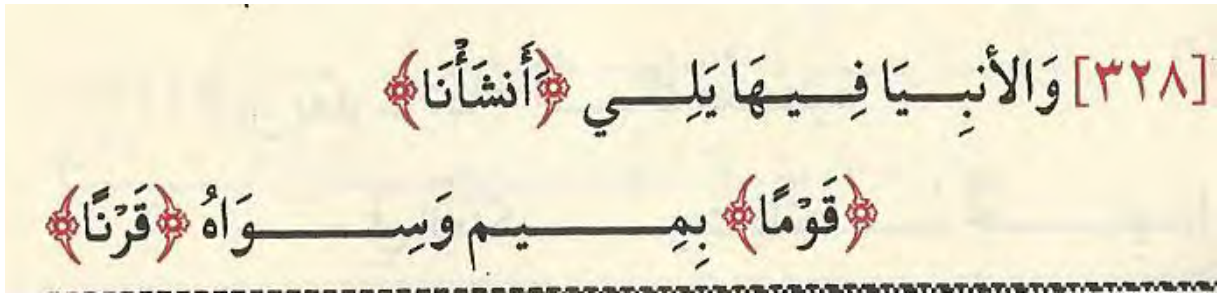 [٣٢٨] وَالأنبِيَا فِيهَا يَلِي ﴿أَنشَأْنَا﴾
﴿قَوْمًا﴾ بِمِيم وَسِوَاهُ ﴿قَرْنًا﴾